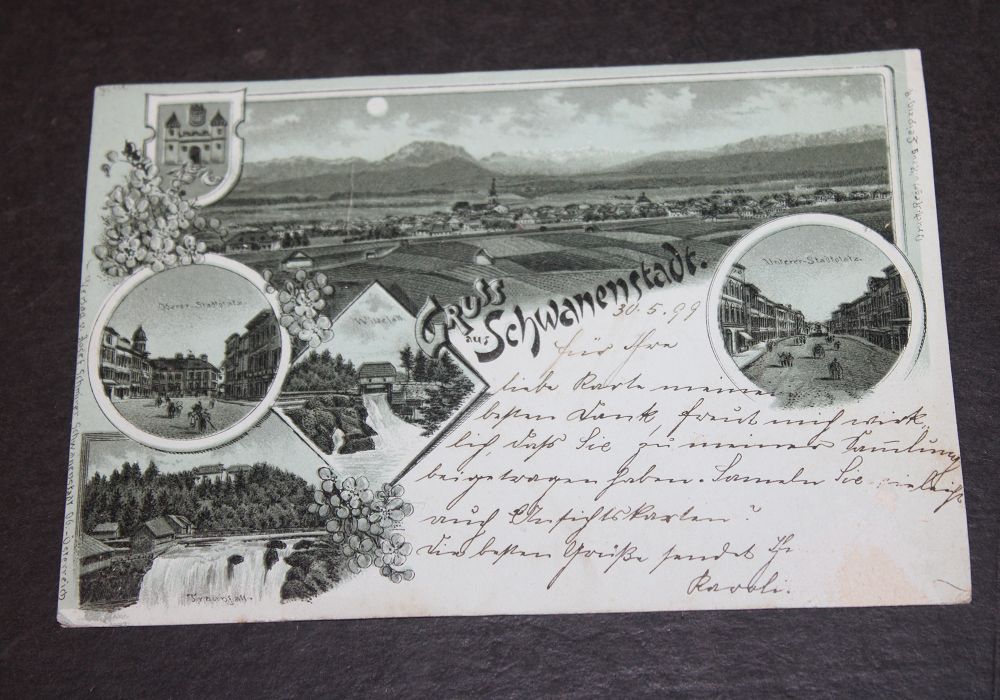 Oberer-Stadtplatz.
Unterer-Stadtplatz.
Gruss
aus
Schwanenstadt.
Traunfall.
30.5.99
für Ihre
liebe Karte meinen
besten Dank, freut mich wirk
lich, daß Sie zu meiner Sam̅lung
beigetragen haben. Sameln Sie vielleicht
auch Ansichtskarten?
Die besten Grüße sendet Ihr
Karoli.